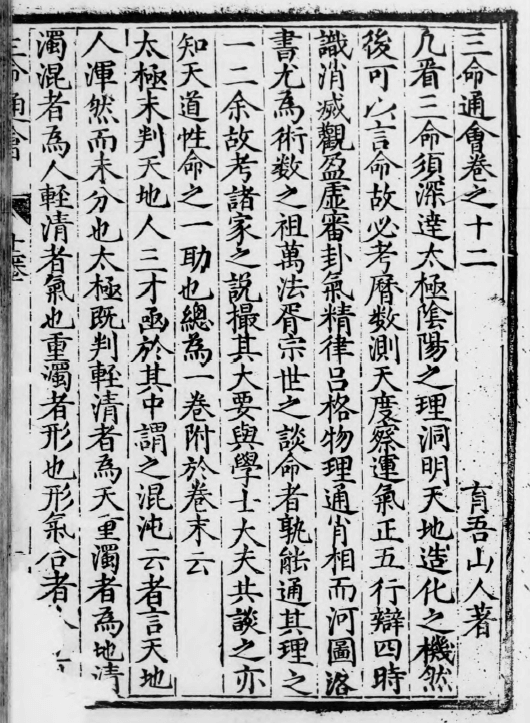 三命通會卷之十二
育吾山人著
凡看三命須深達太極陰陽之理洞明天地造化之機然
後可以言命故必考曆数測天度察運氣正五行辯四時
識消滅觀盈虛審卦氣精律吕格物理通肖相而河圖洛
書尤為術数之祖萬法胥宗世之談命者孰能通其理之
一二余故考諸家之說撮其大要與學士大夫共談之亦
知天道性命之一助也總為一卷附於卷末云
太極未判天地人三才函於其中謂之混沌云者言天地
人渾然而未分也太極既判輕清者為天重濁者為地清
濁混者為人輕清者氣也重濁者形也形氣合者人
三命通會